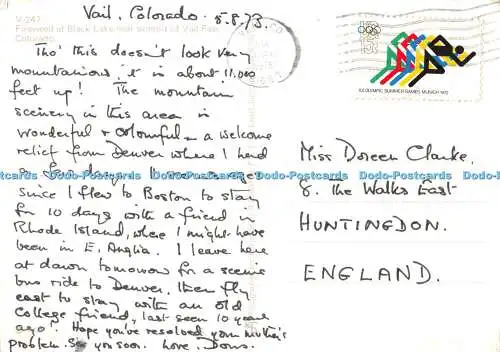 Vail, Colorado. 8.8.73.
V-247
Fireweed at Black Lake near summit of Vail Pass,
Colorado
Tho' this doesn't look very
mountainous, it is about 11,000
feet up! The mountain
scenery in this area is
wonderful & colourful - a welcome
relief from Denver where I had
a
days
since I flew to Boston to stay
for 10 days with a friend in
Rhode Island, where I might have
been in E. Anglia. I leave here
at dawn tomorrow for a scenic
bus ride to Denver, then fly
east to stay with an old
College friend, last seen 10 years
ago. Hope you've resolved your mother's
problem. See you soon. Love, Doris.
XX OLYMPIC SUMMER GAMES MUNICH 1972
Miss Doreen Clarke,
8. The Walks East
HUNTINGDON.
ENGLAND.
Dodo-Postcards Dodo-Postcards Dodo-Postcards Dodo-Postcards
Dodo-Postcards Dodo-Postcards Dodo-Postcards Dodo-Postcards